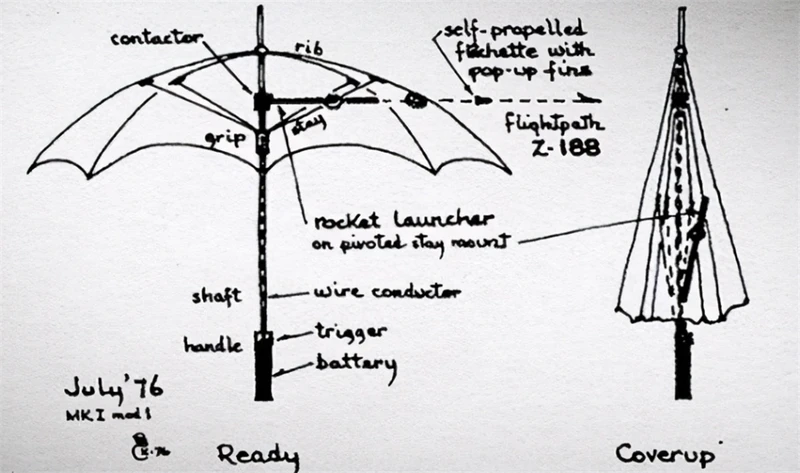 contactor
rib
self-propelled
flechette with
pop-up fins
stay
grip
flightpath
Z-188
rocket launcher
on pivoted stay mount
shaft
wire conductor
handle
trigger
battery
July '76
MK I mod 1
Ready
Coverup